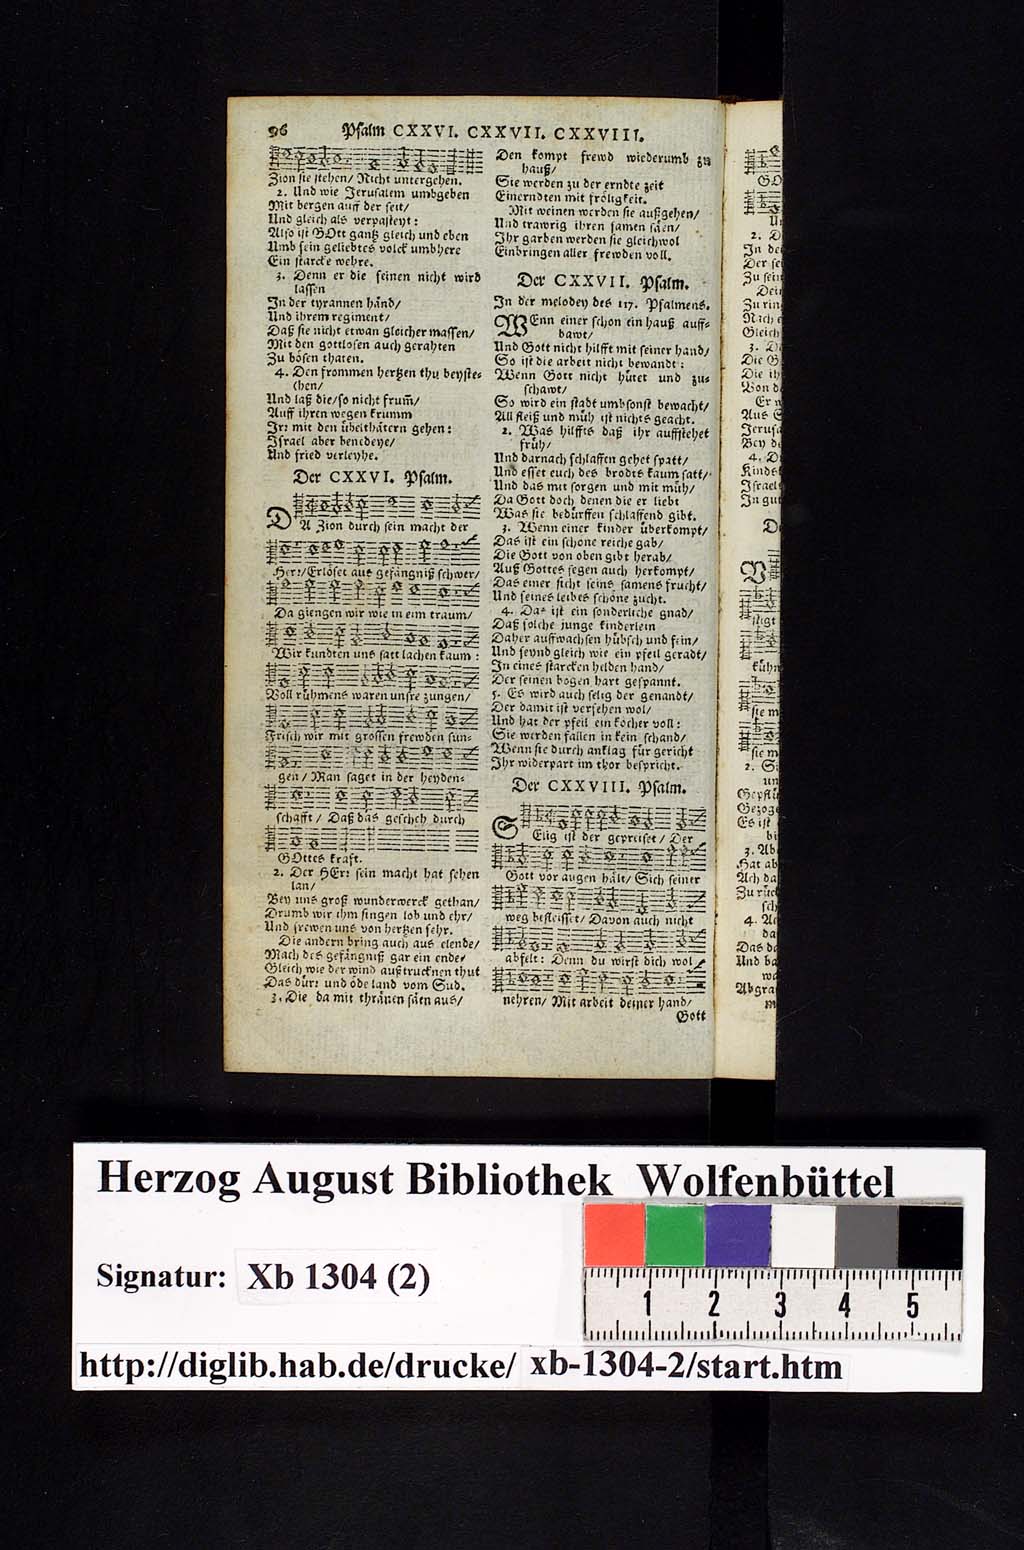 96 Psalm CXXVI. CXXVII. CXXVIII.
Zion sie stehen/ Nicht untergehen.
2. Und wie Jerusalem umbgeben
Mit bergen auff der seit/
Und gleich als verpasteyt:
Also ist GOtt gantz gleich und eben
Umb sein geliebtes volck umbhere
Ein starcke wehre.
3. Denn er die seinen nicht wird
lassen
In der tyrannen händ/
Und ihrem regiment/
Daß sie nicht etwan gleicher massen/
Mit den gottlosen auch gerahten
Zu bösen thaten.
4. Den frommen hertzen thu beyste-
chen/
Und laß die/ so nicht frum̃/
Auff ihren wegen krumm
Jr: mit den übelthätern gehen:
Israel aber benedeye/
Und fried verleyhe.
Der CXXVI. Psalm.
DA Zion durch sein macht der
Her:/ Erlöset aus gefängniß schwer/
Da giengen wir wie in eim traum/
Wir kundten uns satt lachen kaum:
Voll rühmens waren unsre zungen/
Frisch wir mit grossen frewden sun-
gen/ Man saget in der heyden-
schafft/ Daß das gescheh durch
GOttes kraft.
2. Der HEr: sein macht hat sehen
lan/
Bey uns groß wunderwerck gethan/
Drumb wir ihm singen lob und ehr/
Und frewen uns von hertzen sehr.
Die andern bring auch aus elende/
Mach des gefängniß gar ein ende/
Gleich wie der wind außtrucknen thut
Das dür: und öde land vom Sud.
3. Die da mit thränen säen aus/
Den kompt frewd wiederumb zu
hauß/
Sie werden zu der erndte zeit
Einerndten mit fröligkeit.
Mit weinen werden sie außgehen/
Und trawrig ihren samen säen/
Ihr garden werden sie gleichwol
Einbringen aller frewden voll.
Der CXXVII. Psalm.
In der melodey des 117. Psalmens.
WEnn einer schon ein hauß auff-
bawt/
Und Gott nicht hilfft mit seiner hand/
So ist die arbeit nicht bewandt:
Wenn Gott nicht hütet und zu-
schawt/
So wird ein stadt umbsonst bewacht/
All fleiß und müh ist nichts geacht.
2. Was hilffts daß ihr auffstehet
früh/
Und darnach schlaffen gehet spatt/
Und esset euch des brodts kaum satt/
Und das mit sorgen und mit müh/
Da Gott doch denen die er liebt
Was sie bedürffen schlaffend gibt.
3. Wenn einer kinder überkompt/
Das ist ein schöne reiche gab/
Die Gott von oben gibt herab/
Auß Gottes segen auch herkompt/
Das einer sicht seins samens frucht/
Und seines leibes schöne zucht.
4. Das ist ein sonderliche gnad/
Daß solche junge kinderlein
Daher auffwachsen hübsch und fein/
Und seynd gleich wie ein pfeil geradt/
In eines starcken helden hand/
Der seinen bogen hart gespannt.
5. Es wird auch selig der genandt/
Der damit ist versehen wol/
Und hat der pfeil ein kocher voll:
Sie werden fallen in kein schand/
Wenn sie durch anklag für gericht
Ihr widerpart im thor bespricht.
Der CXXVIII. Psalm.
SElig ist der gepreiset/ Der
Gott vor augen hält/ Sich seiner
weg befleisset/ Davon auch nicht
abfelt: Denn du wirst dich wol
nehren/ Mit arbeit deiner hand/
Gott
Herzog August Bibliothek Wolfenbüttel
Signatur: Xb 1304 (2)
1 2 3 4 5
http://diglib.hab.de/drucke/ xb-1304-2/start.htm